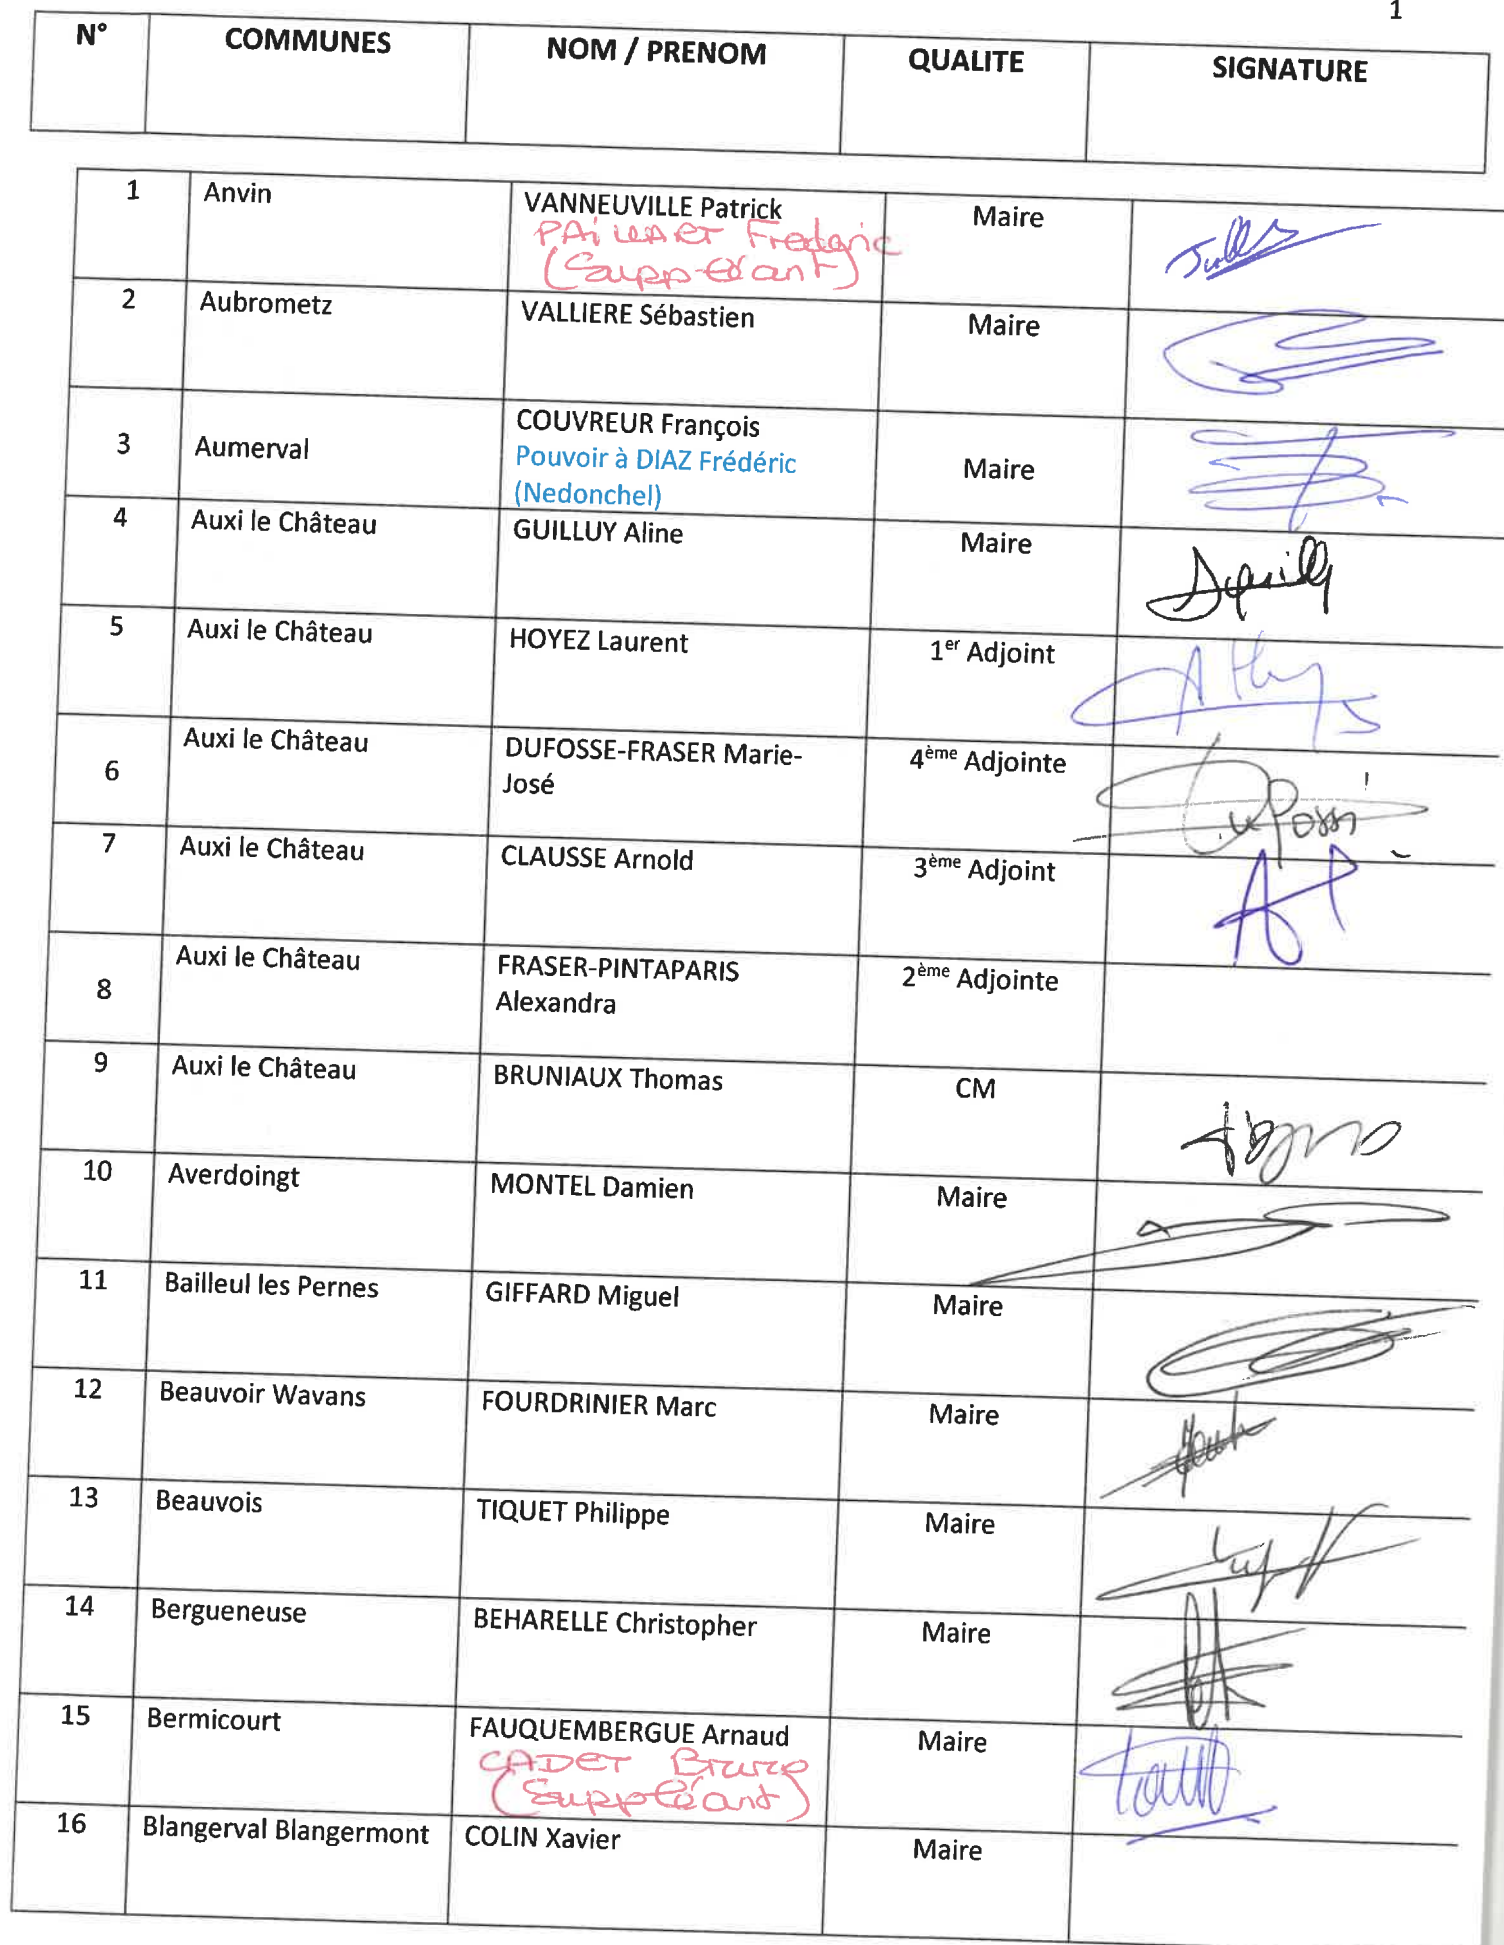 1
N° COMMUNES NOM / PRENOM QUALITE SIGNATURE
1 Anvin VANNEUVILLE Patrick Maire
PAILLART Frederic
(Suppléant)
2 Aubrometz VALLIERE Sébastien Maire
COUVREUR François
3 Aumerval Pouvoir à DIAZ Frédéric Maire
(Nedonchel)
4 Auxi le Château GUILLUY Aline Maire
5 Auxi le Château HOYEZ Laurent 1er Adjoint
6 Auxi le Château DUFOSSE-FRASER Marie- 4ème Adjointe
José
7 Auxi le Château CLAUSSE Arnold 3ème Adjoint
8 Auxi le Château FRASER-PINTAPARIS 2ème Adjointe
Alexandra
9 Auxi le Château BRUNIAUX Thomas CM
10 Averdoingt MONTEL Damien Maire
11 Bailleul les Pernes GIFFARD Miguel Maire
12 Beauvoir Wavans FOURDRINIER Marc Maire
13 Beauvois TIQUET Philippe Maire
14 Bergueneuse BEHARELLE Christopher Maire
15 Bermicourt FAUQUEMBERGUE Arnaud Maire
CADET Bruno
(Suppléant)
16 Blangerval Blangermont COLIN Xavier Maire